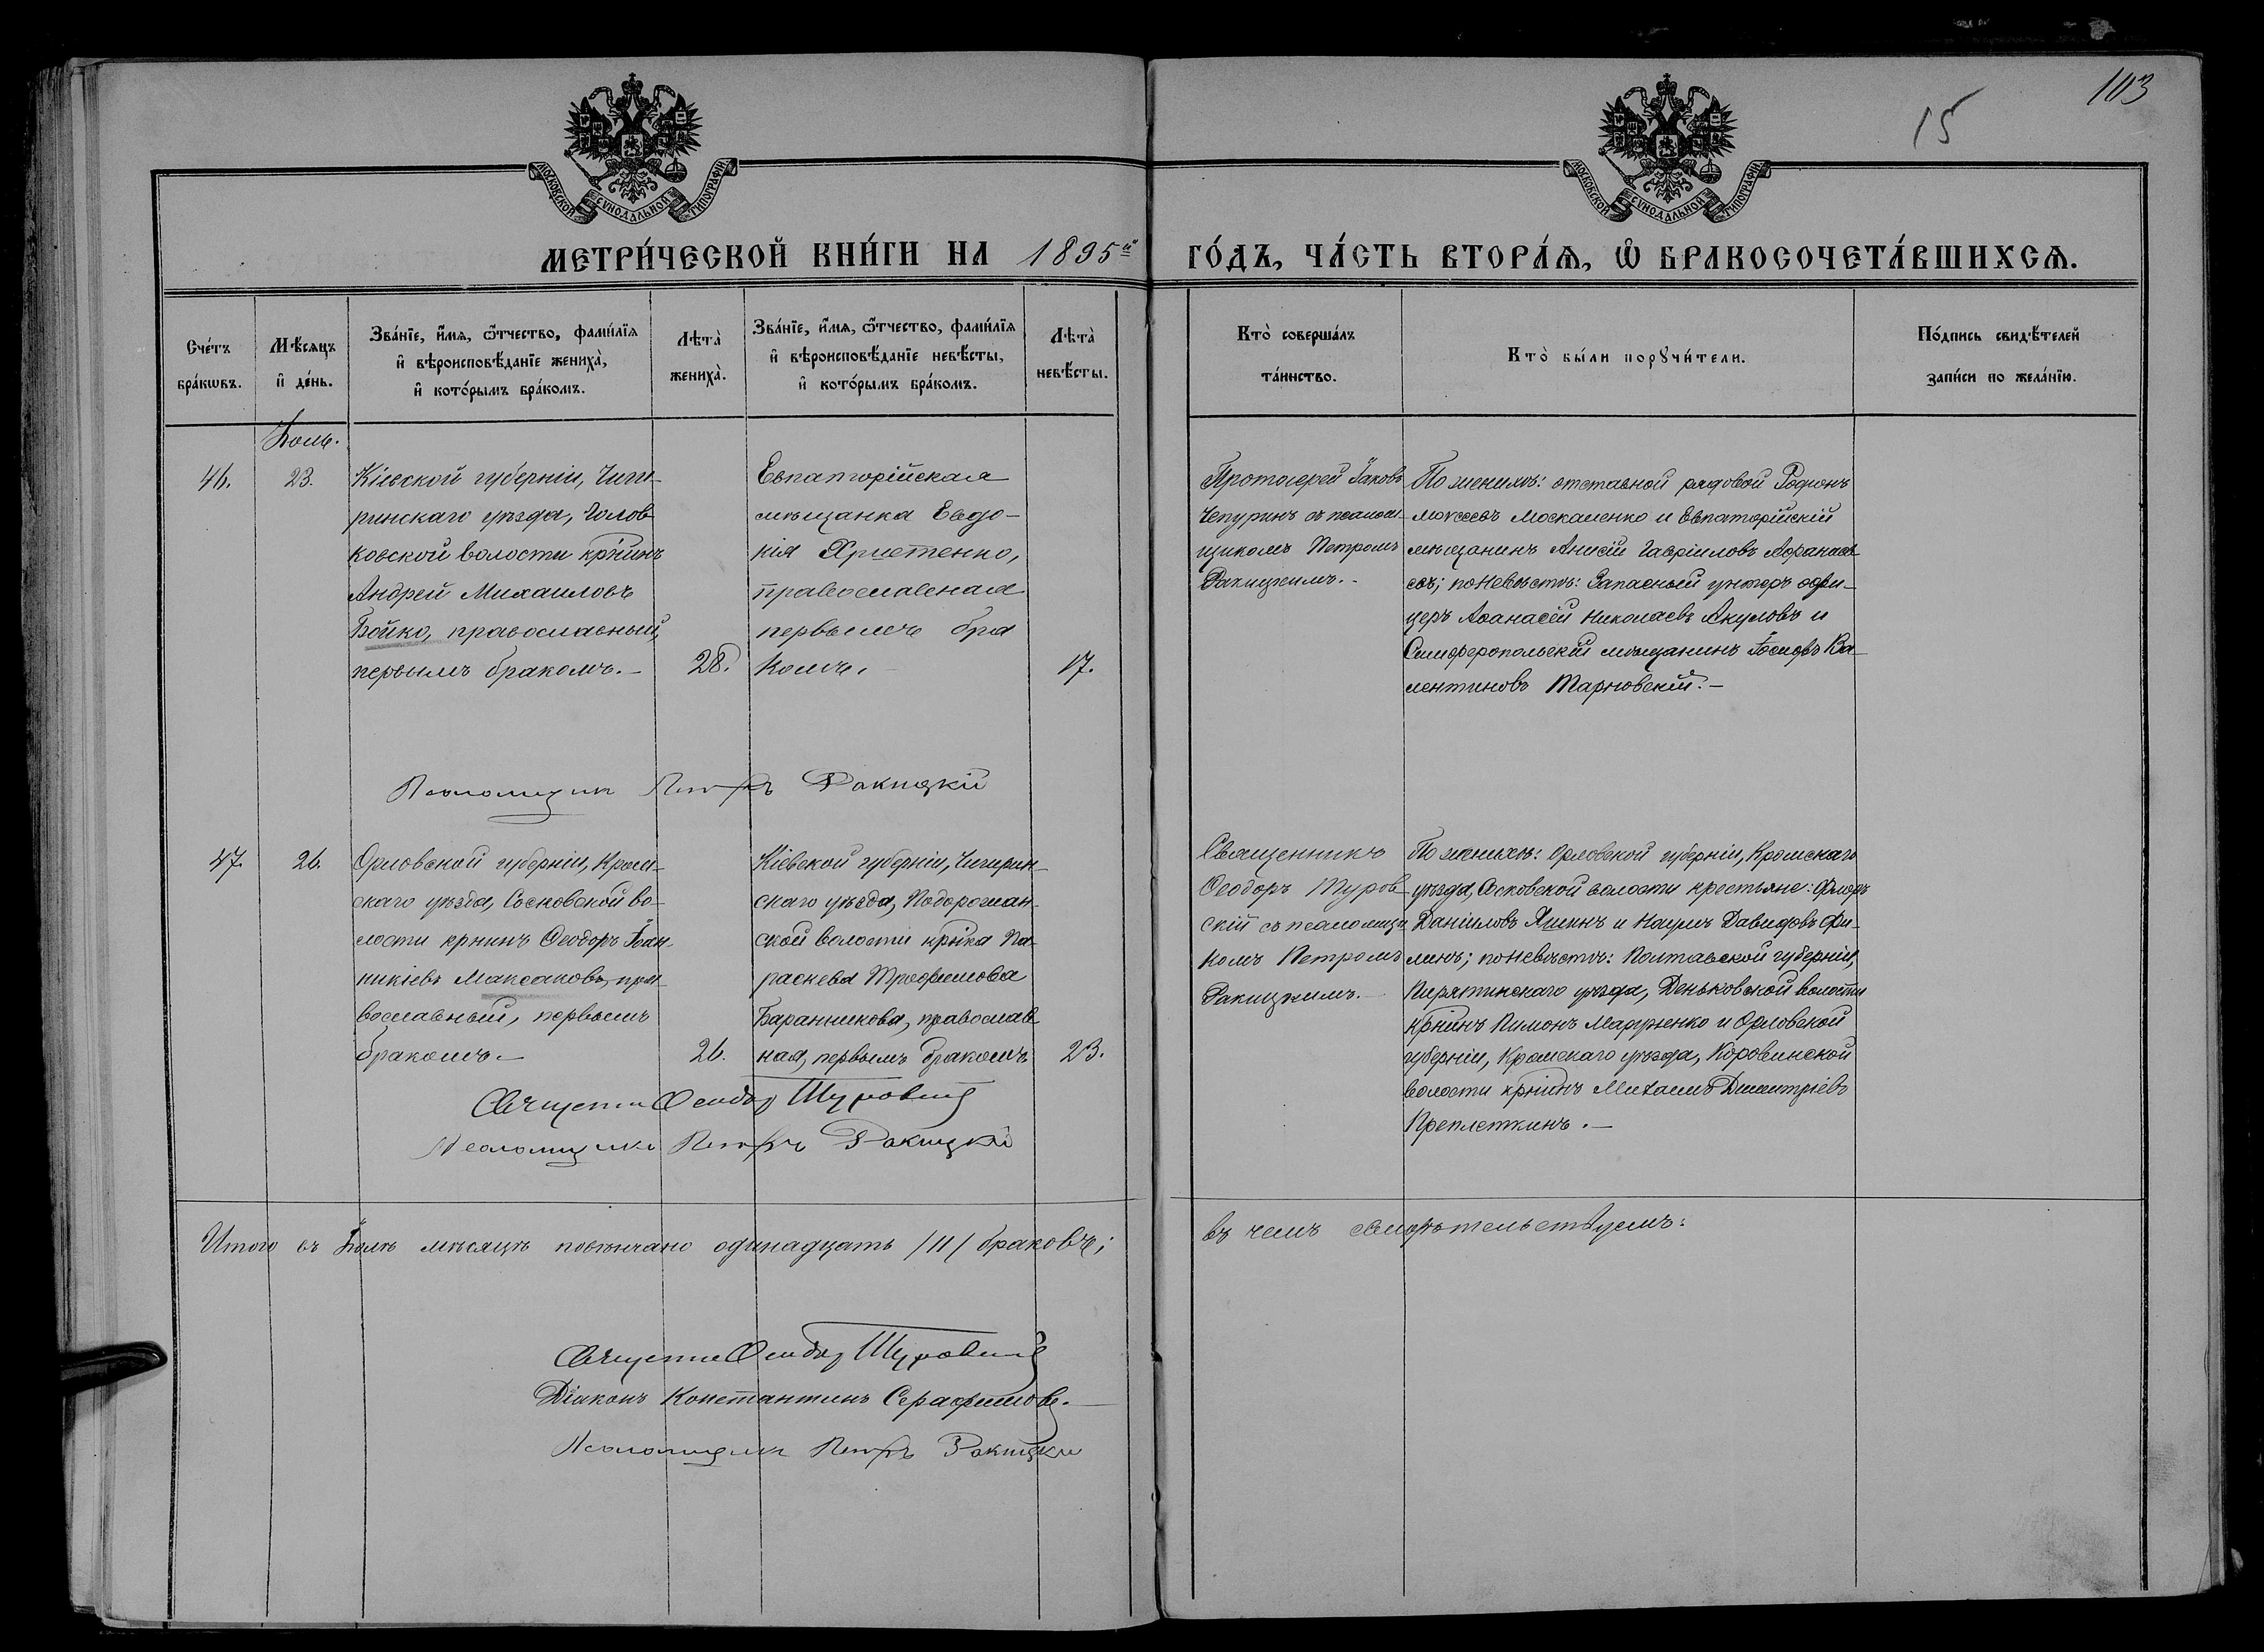 103
15
МОСКОВСКОЙ СѴНОДАЛЬНОЙ ТИПОГРАФИ
МОСКОВСКОЙ СѴНОДАЛЬНОЙ ТИПОГРАФИ
МЕТРИ́ЧЕСКОЙ КНИ́ГИ НА 1895й ГО́ДЪ, ЧА́СТЬ ВТОРА́Ѧ, Ѡ БРАКОСОЧЕТА́ВШИХСѦ.
Сче́тъ
бра́кѡвъ.
Мѣ́сяцъ
и҆ де́нь.
Зва́нїе, и҆́мѧ, ѻ҆́тчество, фами́лїѧ
и҆ вѣроисповѣ́данїе жениха̀,
и҆ кото́рымъ бра́комъ.
Лѣта̀
жениха̀.
Зва́нїе, и҆́мѧ, ѻ҆́тчество, фами́лїѧ
и҆ вѣроисповѣ́данїе невѣ́сты,
и҆ кото́рымъ бра́комъ.
Лѣта̀
невѣ́сты.
Кто̀ соверша́лъ
та́инство.
Кто̀ бы́ли порꙋчи́тели.
По́дпись свидѣ́телей
за́писи по жела́нїю.
Іюль.
46.
23.
Кіевской губерніи, Чиги-
ринскаго уѣзда, Голов-
ковской волости кр҃нинъ
Андрей Михаиловъ
Бойко, православный,
первымъ бракомъ.-
28.
Евпаторійская
мѣщанка Евдо-
кія Христенко,
православная
первымъ бра
комъ.-
17.
Протоіерей Іаковъ
Чепуринъ съ псалом-
щикомъ Петромъ
Ракицкимъ.-
По женихѣ: отставной рядовой Родіонъ
Моѵсеевъ Москаленко и Евпаторійскій
мѣщанинъ Анисій Гавріиловъ Афанась-
евъ; по невѣстѣ: Запасный унтеръ офи-
церъ Аѳанасій Николаевъ Акуловъ и
Симферопольскій мѣщанинъ Іосифъ Ва-
лентиновъ Тарновскій.-
Псаломщикъ Петръ Ракицкій
47.
26.
Орловской губерніи, Кром-
скаго уѣзда, Сосковской во-
лости крнинъ Ѳеодоръ Іоан-
никіевъ Максаковъ, пра-
вославный, первымъ
бракомъ.-
26.
Кіевской губерніи, Чигирин-
скаго уѣзда, Подорожан-
ской волости крнка Па-
раскева Трофимова
Баранникова, православ-
ная, первымъ бракомъ
23.
Священникъ
Ѳеодоръ Туров-
скій съ псаломщи-
комъ Петромъ
Ракицкимъ.-
По женихѣ: Орловской губерніи, Кромскаго
уѣзда, Сосковской волости крестьяне: Флоръ
Даніиловъ Яшинъ и Наумъ Давидовъ Фи-
линъ; по невѣстѣ: Полтавской губерніи,
Пирятинскаго уѣзда, Деньковской волости
крнинъ Пимонъ Марченко и Орловской
губерніи, Кромскаго уѣзда, Коровинской
волости крнинъ Михаилъ Димитріевъ
Преплеткинъ.-
Священникъ Ѳеодоръ Туровскій
Псаломщикъ Петръ Ракицкій
Итого въ Іюлѣ мѣсяцѣ повѣнчано одинадцать /11/ браковъ;
въ чемъ свидѣтельствуемъ:
Священникъ Ѳеодоръ Туровскій
Діаконъ Константинъ Серафимовъ.
Псаломщикъ Петръ Ракицкій